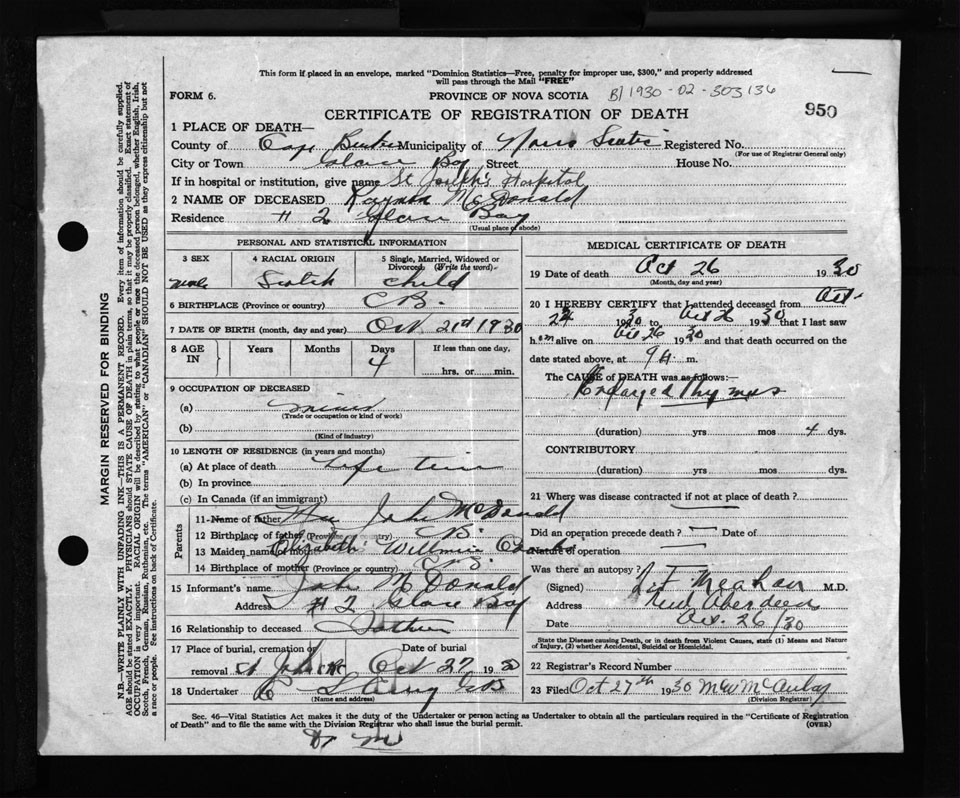 This form if placed in an envelope, marked "Dominion Statistics—Free, penalty for improper use, $300," and properly addressed
will pass through the Mail "FREE"
FORM 6. PROVINCE OF NOVA SCOTIA B/1930-02-303136
CERTIFICATE OF REGISTRATION OF DEATH 950
1 PLACE OF DEATH—
County of Cape Breton Municipality of Nova Scotia Registered No.
(For use of Registrar General only)
City or Town Glace Bay Street House No.
If in hospital or institution, give name St Joseph's Hospital
2 NAME OF DECEASED McDonald
Residence # 2 Glace Bay
(Usual place of abode)
PERSONAL AND STATISTICAL INFORMATION
3 SEX 4 RACIAL ORIGIN 5 Single, Married, Widowed or Divorced (Write the word)
male Scotch Child
6 BIRTHPLACE (Province or country) C B.
7 DATE OF BIRTH (month, day and year) Oct 21st 1930
8 AGE IN Years Months Days If less than one day,
4 hrs. or min.
9 OCCUPATION OF DECEASED
(a)
(Trade or occupation or kind of work)
(b)
(Kind of industry)
10 LENGTH OF RESIDENCE (in years and months)
(a) At place of death Life Time
(b) In province
(c) In Canada (if an immigrant)
Parents
11 Name of father John McDonald
12 Birthplace of father (Province or country) C B.
13 Maiden name of mother Elizabeth
14 Birthplace of mother (Province or country) C. B.
15 Informant's name John McDonald
Address # 2 Glace Bay
16 Relationship to deceased Father
17 Place of burial, cremation or removal Date of burial
St Oct 27 1930
18 Undertaker
(Name and address)
MEDICAL CERTIFICATE OF DEATH
19 Date of death Oct 26 1930
(Month, day and year)
20 I HEREBY CERTIFY that I attended deceased from Oct.
1930 to Oct 26 1930 that I last saw
h alive on Oct 26 1930 and that death occurred on the
date stated above, at m.
The CAUSE of DEATH was as follows:—
Enlarged Thymus
(duration) yrs mos 4 dys.
CONTRIBUTORY
(duration) yrs. mos. dys.
21 Where was disease contracted if not at place of death?
Did an operation precede death? Date of
Nature of operation
Was there an autopsy?
(Signed) Meahan M.D.
Address New Aberdeen
Date Oct. 26/30
State the Disease causing Death, or in death from Violent Causes, state (1) Means and Nature
of Injury, (2) whether Accidental, Suicidal or Homicidal.
22 Registrar's Record Number
23 Filed Oct 27th 1930 McAulay
(Division Registrar)
Sec. 46—Vital Statistics Act makes it the duty of the Undertaker or person acting as Undertaker to obtain all the particulars required in the "Certificate of Registration
of Death" and to file the same with the Division Registrar who shall issue the burial permit. (OVER)
MARGIN RESERVED FOR BINDING
N.B.—WRITE PLAINLY WITH UNFADING INK—THIS IS A PERMANENT RECORD. Every item of information should be carefully supplied.
AGE should be stated EXACTLY. PHYSICIANS should STATE CAUSE OF DEATH in plain terms, so that it may be properly classified. Exact statement of
OCCUPATION is very important. RACIAL ORIGIN will be described by stating to what people or race the deceased person belonged, whether English, Irish,
Scotch, French, German, Russian, Ruthenian, etc. The terms "AMERICAN" or "CANADIAN" SHOULD NOT BE USED as they express citizenship but not
a race or people. See instructions on back of Certificate.